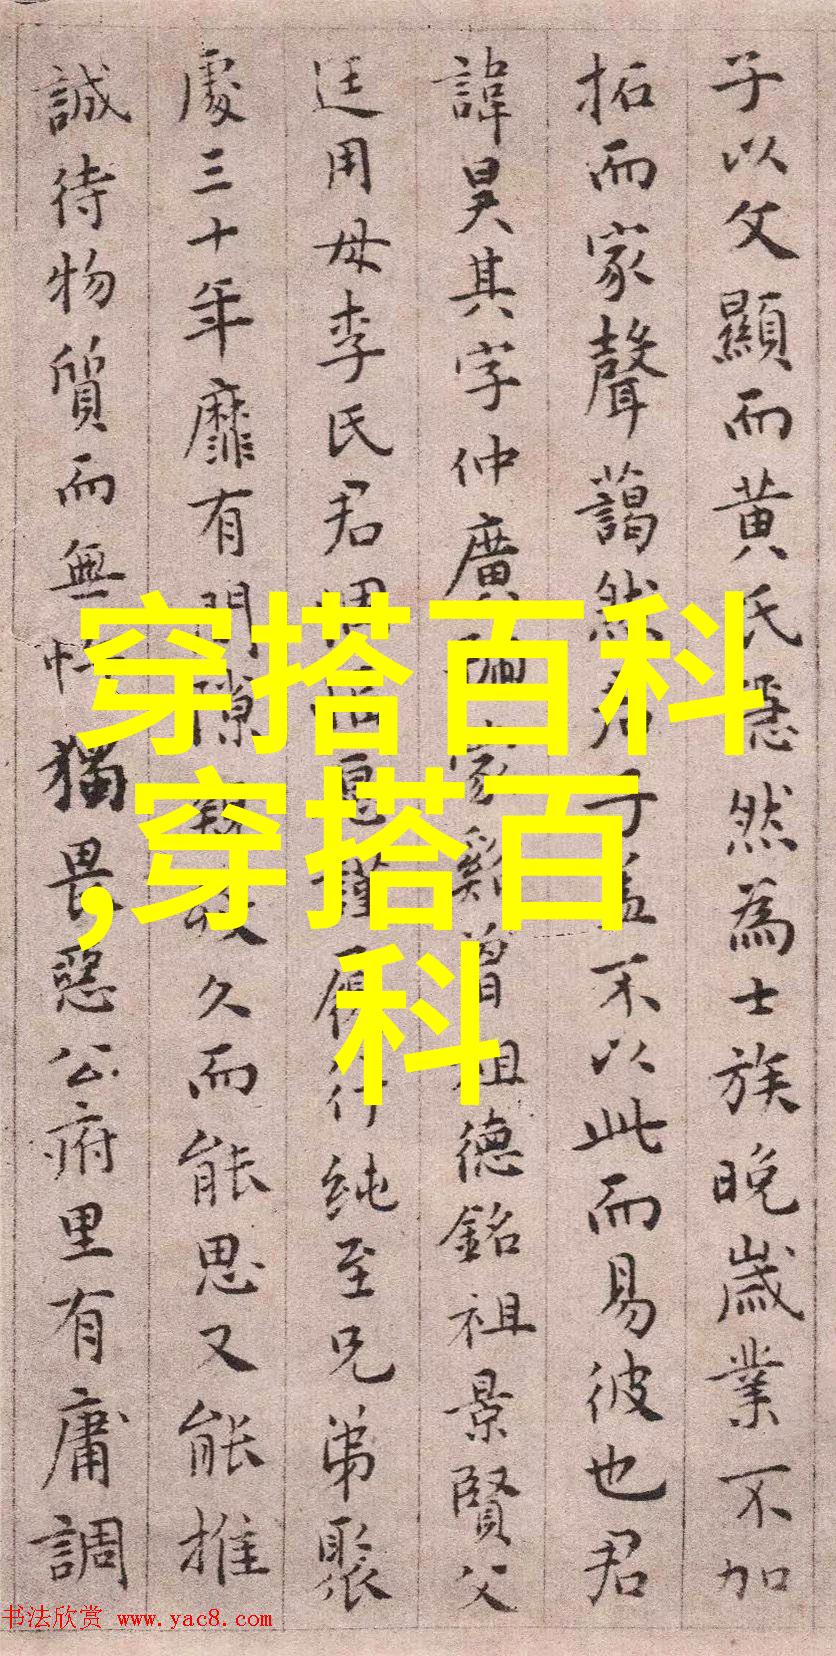 子以父顯而黄氏隱然為士族晚歲業不加
拓而家聲藹然君子蓋不以此而易彼也君
諱昊其字仲廣家谿曾祖德銘祖景賢父
廷用母李氏君謹履行純至兄弟聚
處三十年靡有間隙久而能思又能推
誠待物質而無忤獨畏惡公府里有庸調
穿搭百科
,穿搭百
科
书法欣赏 www.yac8.com